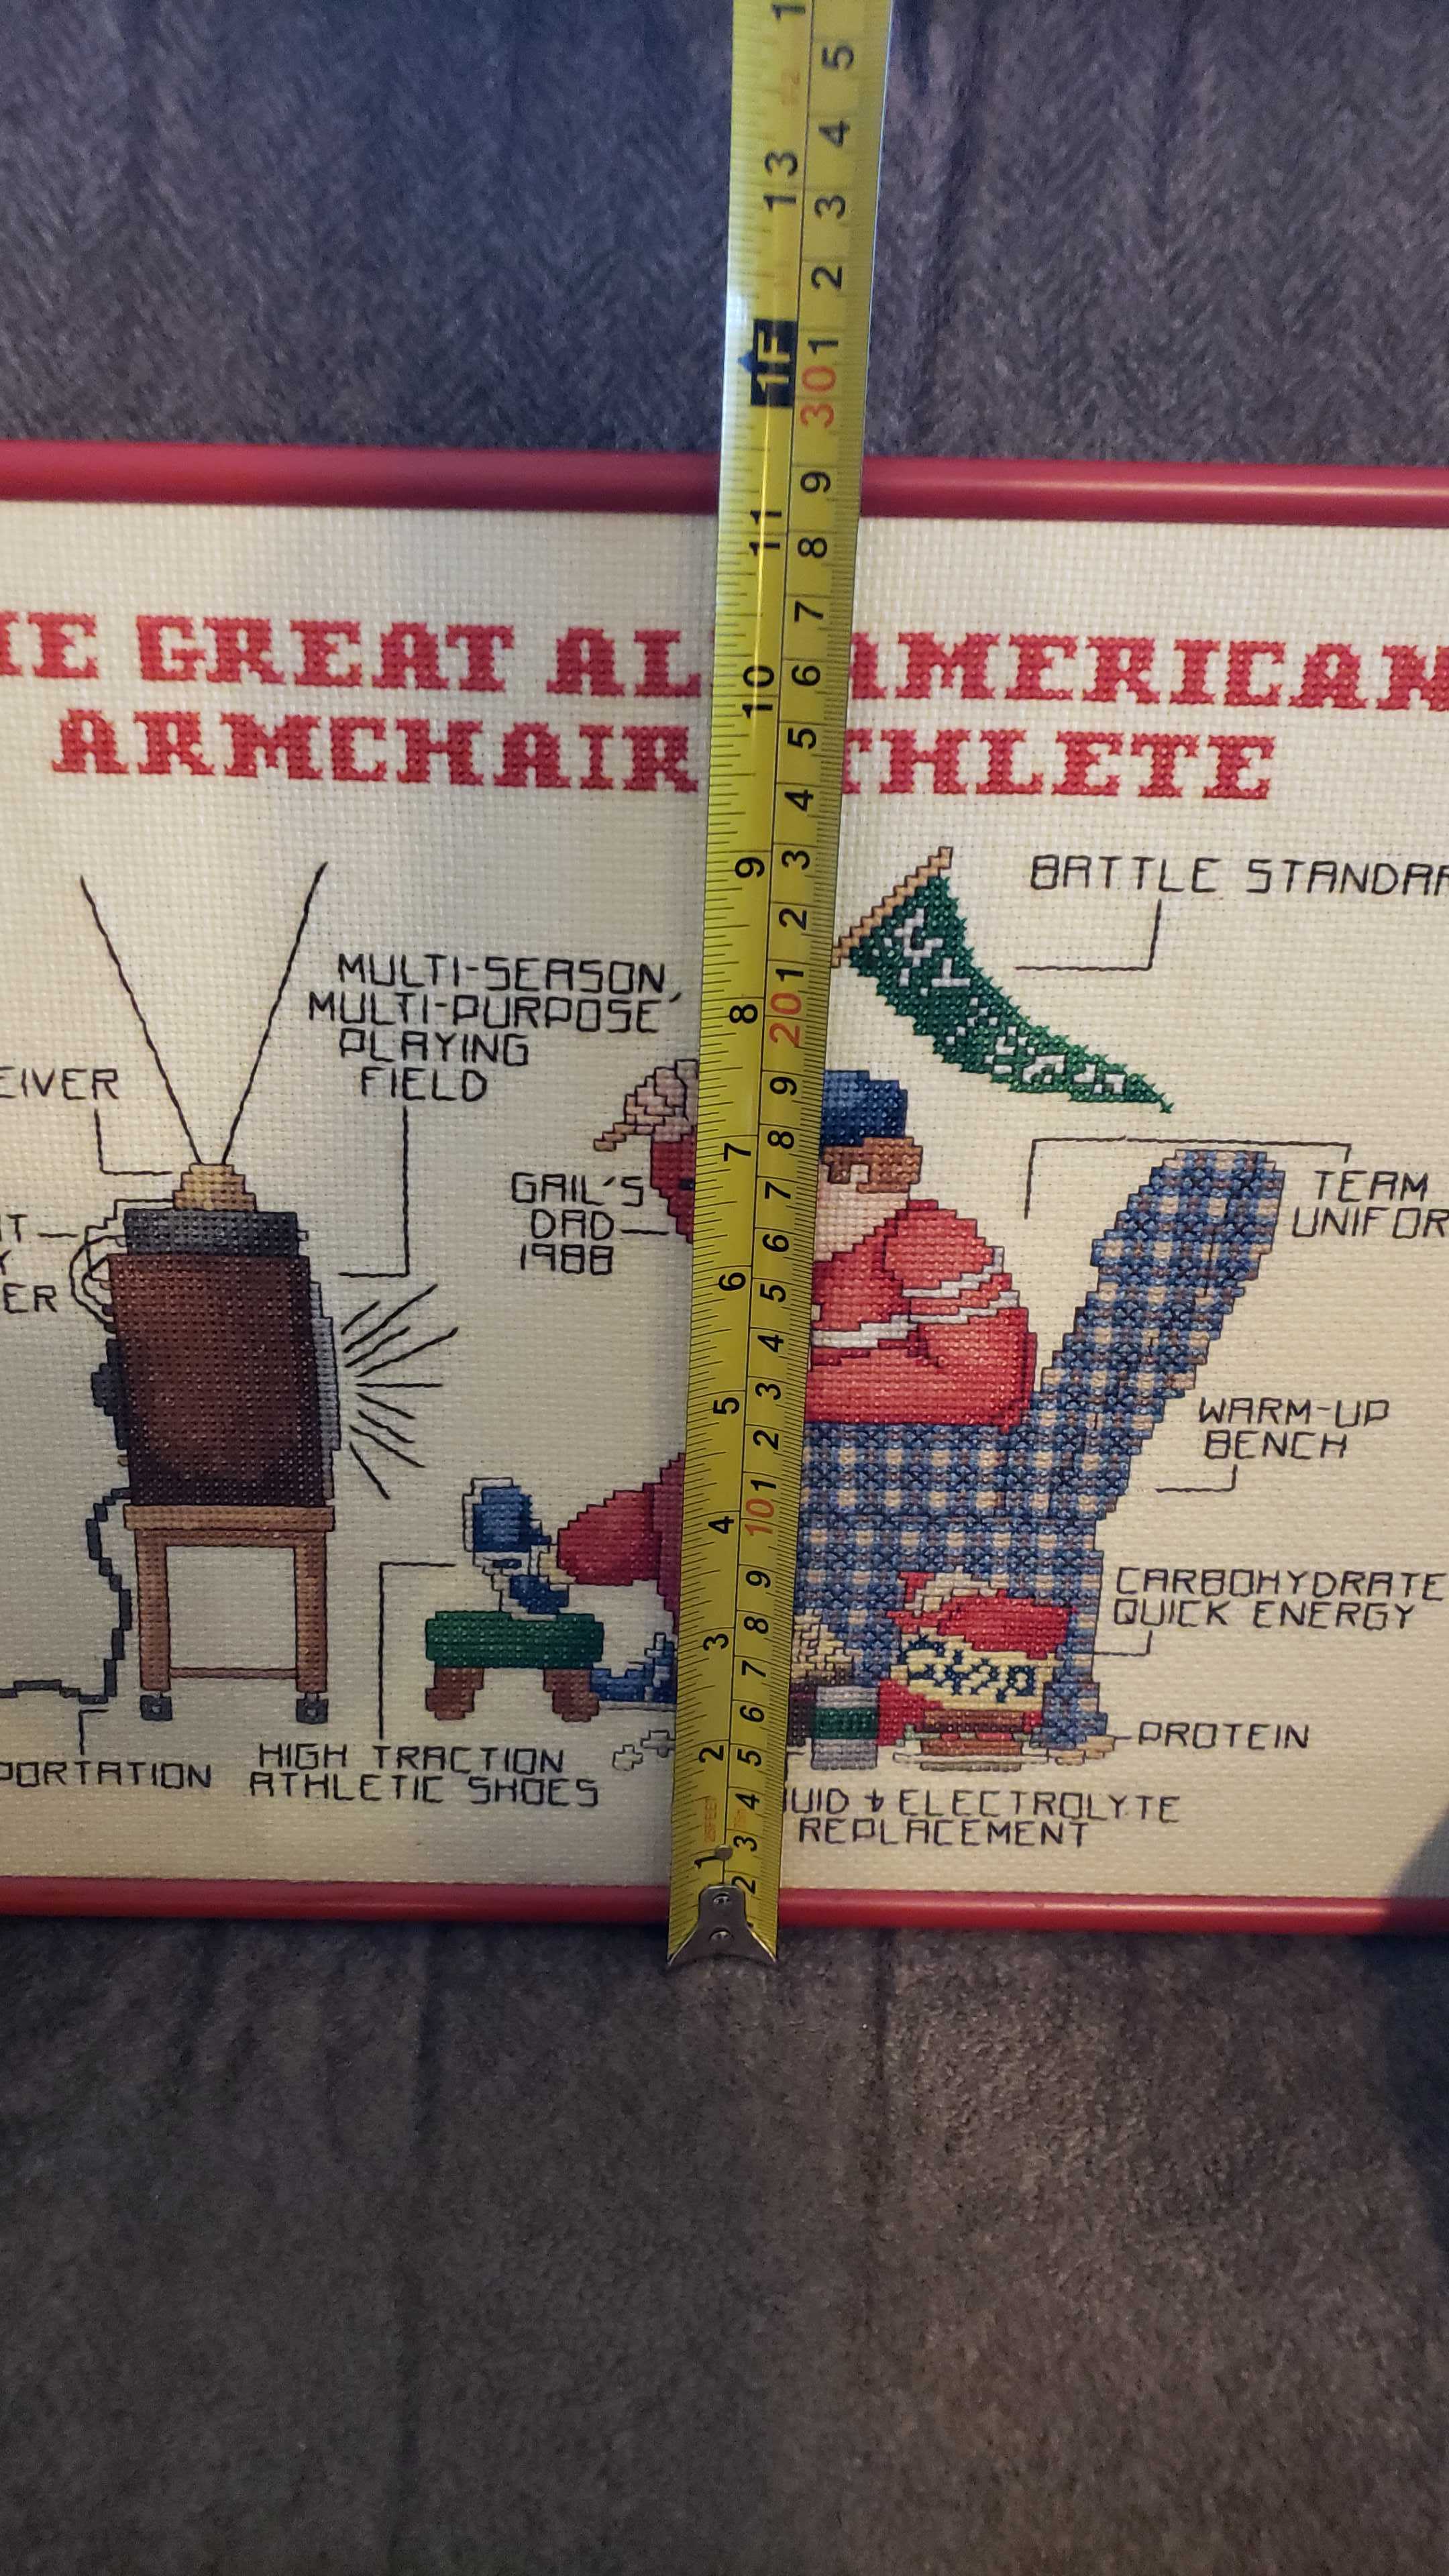 HE GREAT AL AMERICAN
ARMCHAIR THLETE
BATTLE STANDAR
MULTI-SEASON,
MULTI-PURPOSE
PLAYING
FIELD
EIVER
GAIL'S
DAD
1988
TEAM
UNIFOR
ER
WARM-UP
BENCH
CARBOHYDRATE
QUICK ENERGY
CHIPS
PROTEIN
PORTATION
HIGH TRACTION
ATHLETIC SHOES
UID & ELECTROLYTE
REPLACEMENT
1
13
1F
11
10
9
8
7
6
5
4
3
2
1
5
4
3
2
1
30
9
8
7
6
5
4
3
2
1
20
9
8
7
6
5
4
3
2
1
10
9
8
7
6
5
4
3
2